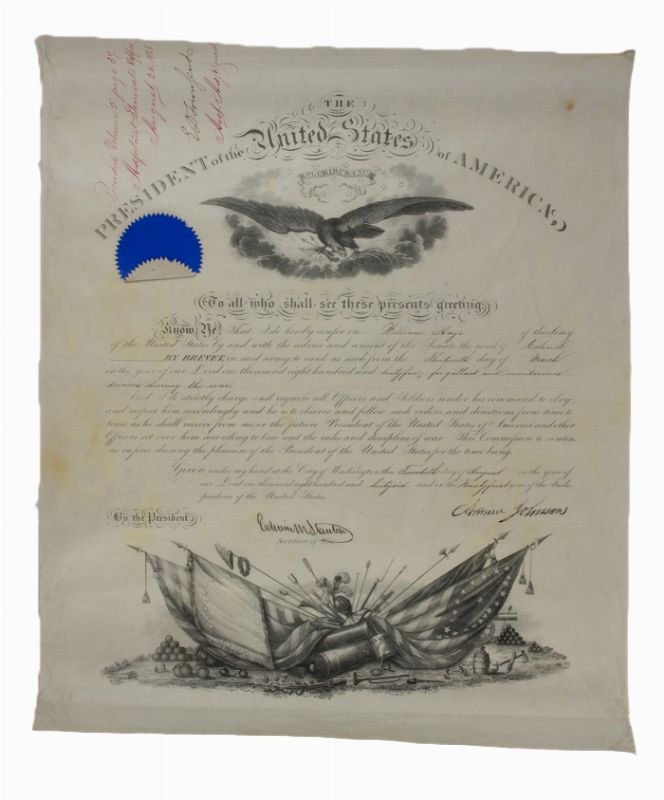 Volume 5, page 37.
Adjutant General's Office
August 20 1866
E D Townsend
Asst Adj Genl
THE
PRESIDENT of the United States of AMERICA,
E PLURIBUS UNUM
To all who shall see these presents greeting:
Know Ye, That I do hereby confer on William Hays of the Army
of the United States by and with the advice and consent of the Senate the rank of Colonel
BY BREVET, in said army to rank as such from the Thirteenth day of March
in the year of our Lord one thousand eight hundred and sixty five, for gallant and meritorious
services during the war.
And I do strictly charge and require all Officers and Soldiers under his command to obey
and respect him accordingly and he is to observe and follow such orders and directions, from time to
time, as he shall receive from me, or the future President of the United States of America, and other
Officers set over him, according to law, and the rules and discipline of war. This Commission to contin-
ue in force during the pleasure of the President of the United States for the time being.
Given under my hand at the City of Washington this Twentieth day of August in the year of
our Lord one thousand eight hundred and sixty six and in the Ninety first year of the Inde
pendence of the United States.
By the President
Andrew Johnson
Edwin M Stanton
Secretary of War.